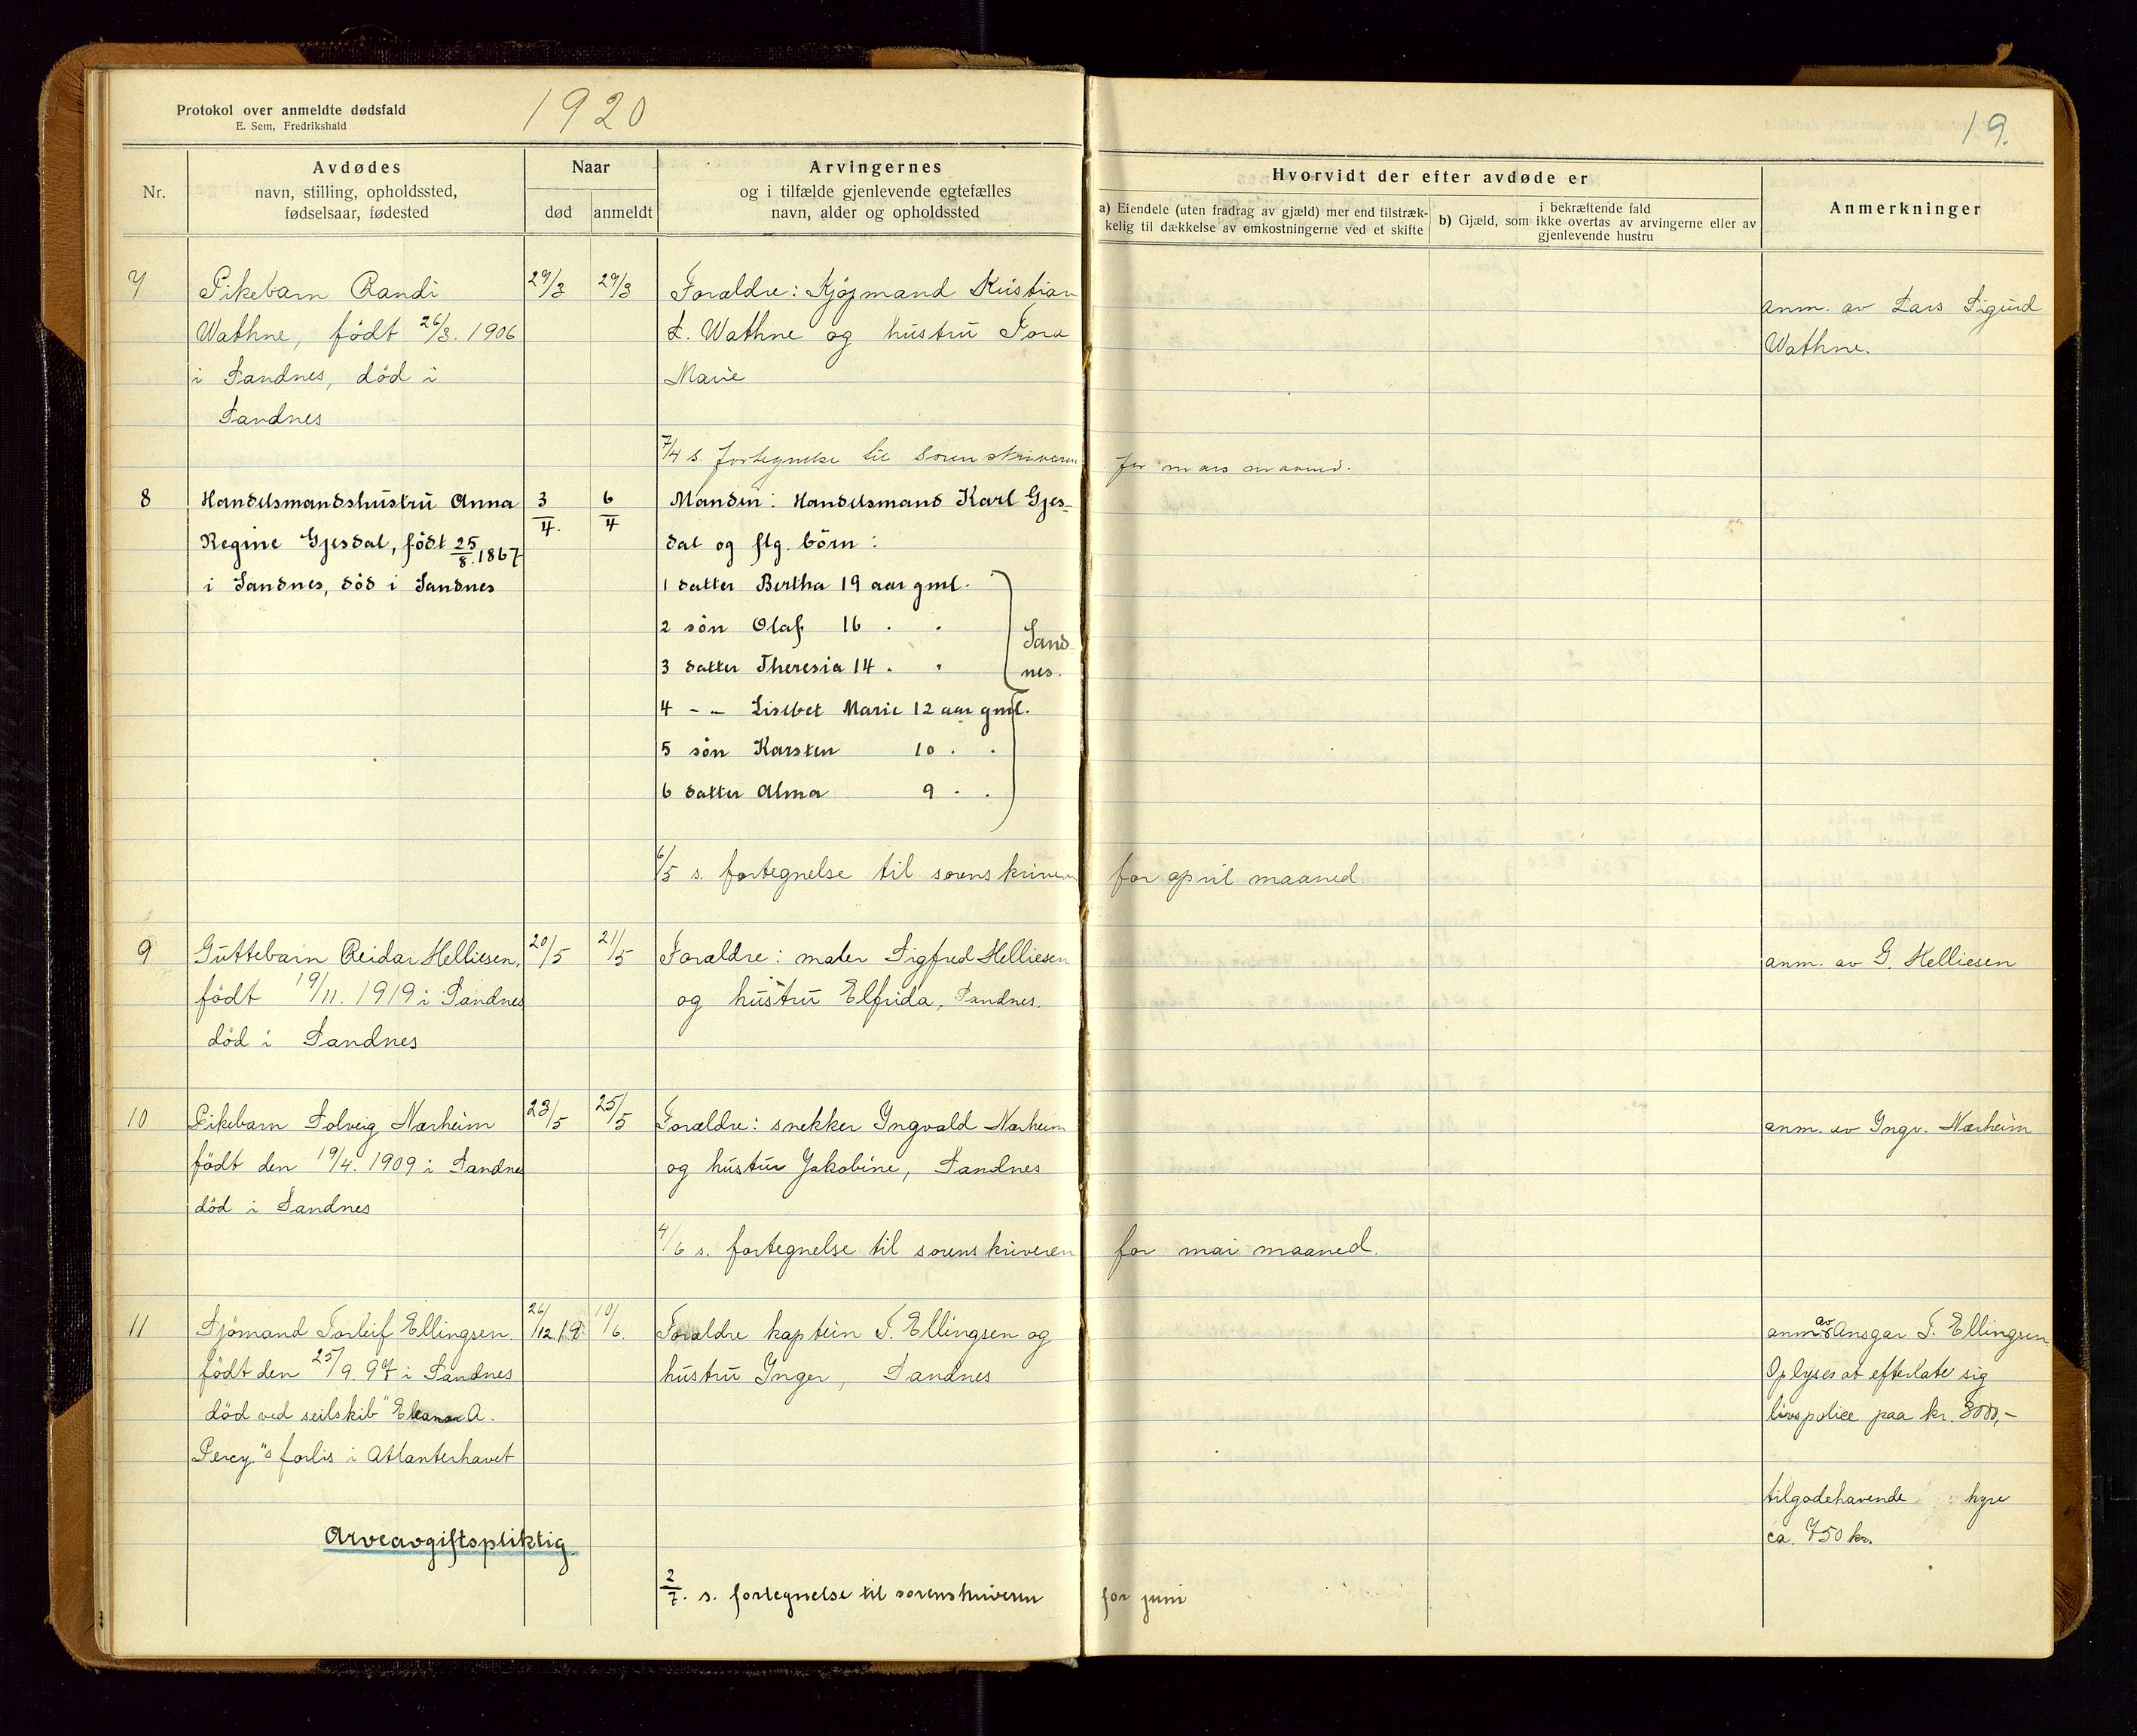 Protokol over anmeldte dødsfald
E. Sem, Fredrikshald
1920
19.
Nr.
Avdødes
navn, stilling, opholdssted,
fødselsaar, fødested
Naar
død
anmeldt
Arvingernes
og i tilfælde gjenlevende egtefælles
navn, alder og opholdssted
Hvorvidt der efter avdøde er
a) Eiendele (uten fradrag av gjæld) mer end tilstræk-
kelig til dækkelse av omkostningerne ved et skifte
i bekræftende fald
b) Gjæld, som ikke overtas av arvingerne eller av
gjenlevende hustru
Anmerkninger
7
Pikebarn Randi
Wathne, født 26/3. 1906
i Sandnes, död i
Sandnes
29/3
29/3
Forældre: Kjøpmand Kristian
L. Wathne og hustru Tora
Marie
anm. av Lars Sigurd
Wathne.
7/4 s. fortegnelse til sorenskriveren for mars maaned.
8
Handelsmandshustru Anna
Regine Gjesdal, født 25/8. 1867
i Sandnes, död i Sandnes
3/4.
6/4
Manden: Handelsmand Karl Gjes-
dal og flg. börn:
1 datter Bertha 19 aar gml.
2 sön Olaf 16 . .
3 datter Theresia 14 . .
Sand-
nes.
4 - - Lisebet Marie 12 aar gml.
5 sön Karsten 10 . .
6 datter Alma 9 . .
6/5 s. fortegnelse til sorenskriveren for april maaned.
9
Guttebarn Reidar Helliesen,
født 19/11. 1919 i Sandnes
död i Sandnes
20/5
21/5
Forældre: maler Sigfred Helliesen
og hustru Elfrida, Sandnes.
anm. av G. Helliesen
10
Pikebarn Solveig Nærheim
født den 19/4. 1909 i Sandnes
död i Sandnes
23/5
25/5
Forældre: snekker Ingvald Nærheim
og hustru Jakobine, Sandnes
anm. av Ingv. Nærheim
4/6 s. fortegnelse til sorenskriveren for mai maaned.
11
Sjömand Torleif Ellingsen
født den 25/9. 97 i Sandnes
död ved seilskib "Eleanor A.
Percy."s forlis i Atlanterhavet
26/12.19
10/6.
Forældre kaptein T. Ellingsen og
hustru Inger, Sandnes
anm. av Ansgar T. Ellingsen
Oplyses at efterlate sig
livspolice paa kr. 3000,-
tilgodehavende hyre
ca. 750 kr.
Arveavgiftspliktig.
2/7. s. fortegnelse til sorenskriveren for juni